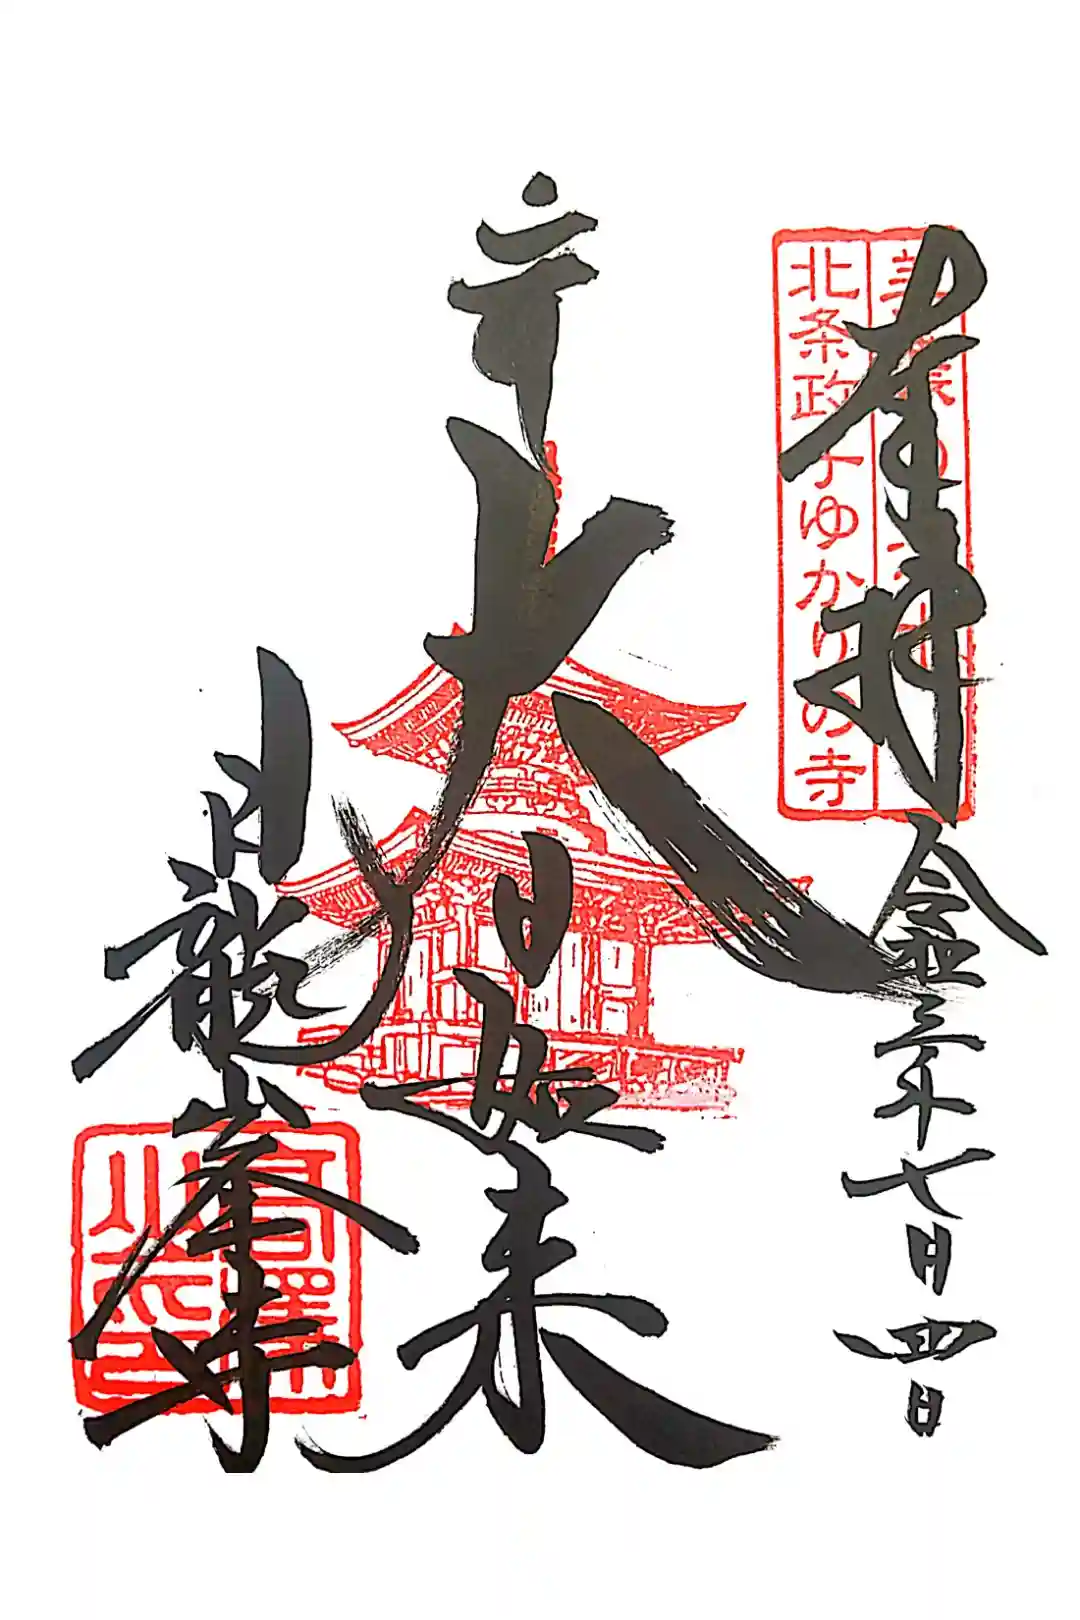 奉拝
令和三年七月四日
北条政子ゆかりの寺
大日如来
日龍峯寺